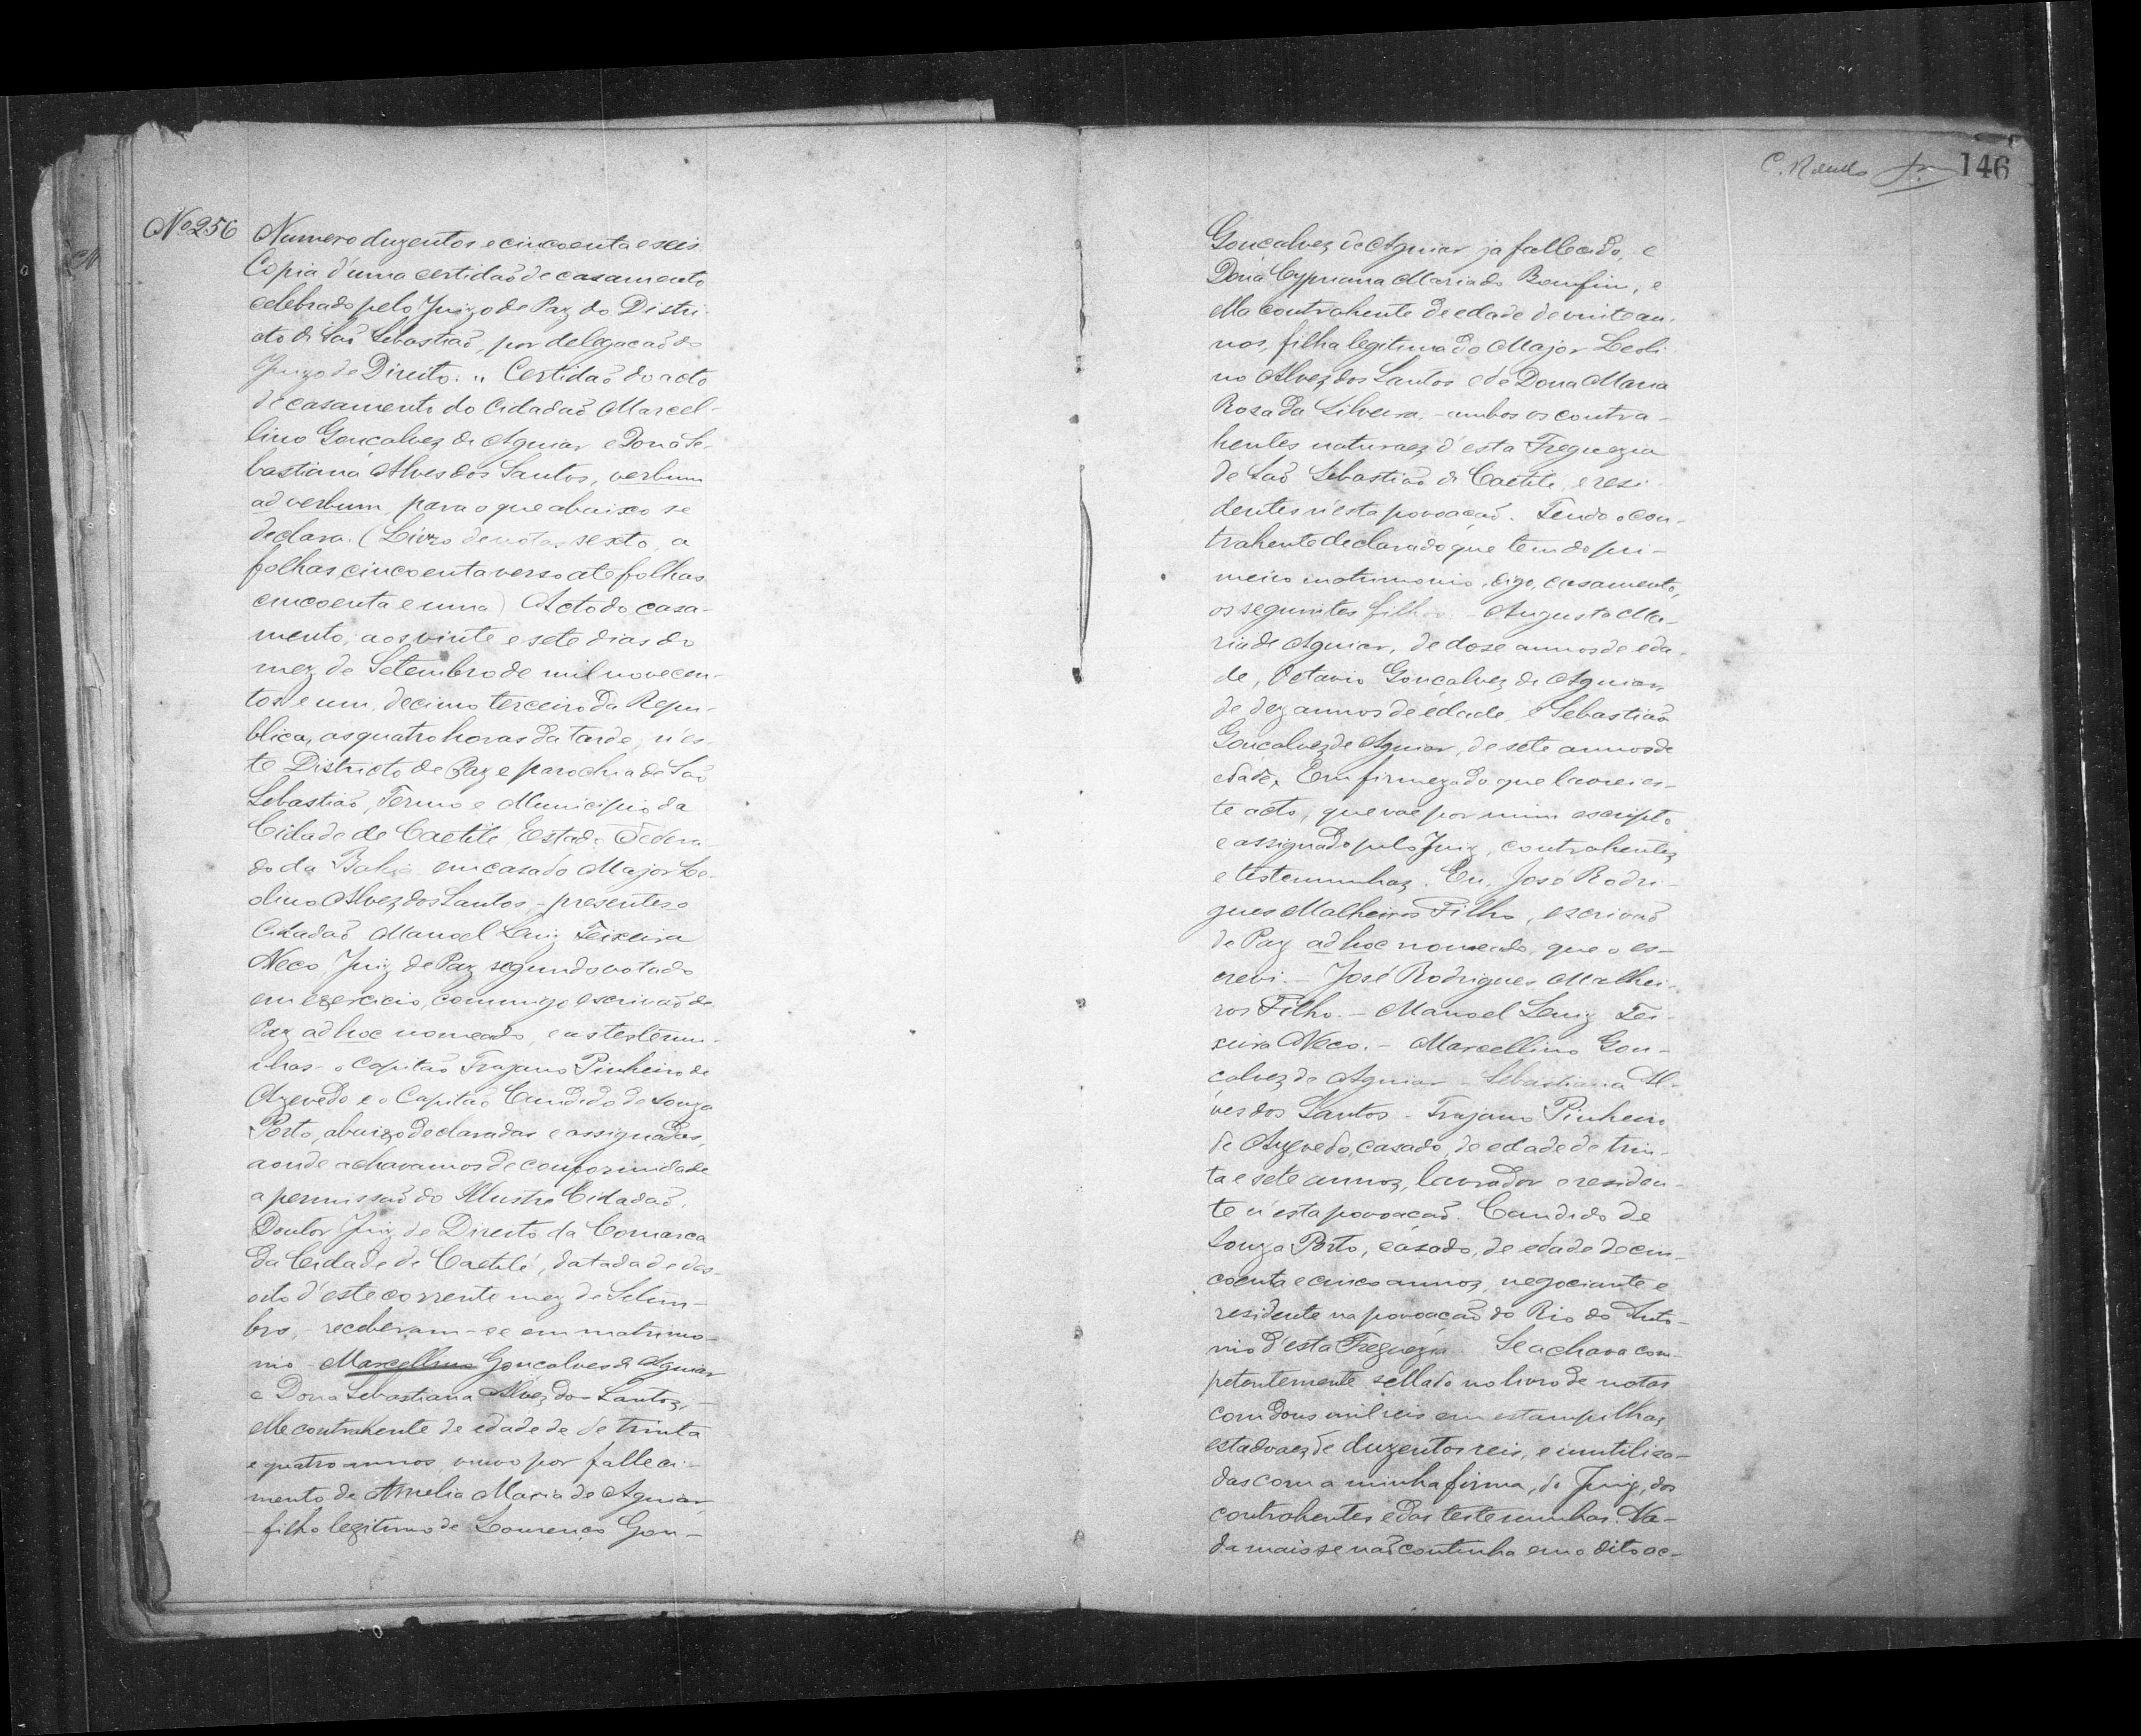 Nº 256 Numero duzentos e cincoenta e seis.
Copia d'uma certidaõ de casamento
celebrado pelo Juizo de Paz do Distri-
cto de Saõ Sebastiaõ, por delegacaõ do
Juizo de Direito. " Certidaõ do acto
de casamento do Cidadaõ Marcel-
lino Goncalvez de Aguiar e Dona Se-
bastiana Alves dos Santos, verbum
ad verbum, para o que abaixo se
declara. (Livro de notas sexto, a
folhas cincoenta verso até folhas
cincoenta e uma) Acto do casa-
mento, aos vinte e sete dias do
mez de Setembro de mil novecen-
tos e um, decimo terceiro da Repu-
blica, as quatro horas da tarde, n'es-
te Districto de Paz e parochia de Saõ
Sebastiaõ, Termo e Municipio da
Cidade de Caetité, Estado Federa-
do da Bahia, em casa do Major Le-
olino Alvez dos Santos, - presentes o
Cidadaõ Manoel Luiz Teixeira
Neco, Juiz de Paz segundo votado
em exercicio, commigo escrivaõ de
Paz ad hoc nomeado, e as testemu-
nhas - o Capitaõ Trajano Pinheiro de
Azevedo e o Capitaõ Candido de Souza
Porto, abaixo declaradas e assignadas,
aonde achavamos de conformidade
a permissaõ do Illustre Cidadaõ,
Doutor Juiz de Direito da Comarca
da Cidade de Caetité, datada de des-
oito d'este corrente mez de Setem-
bro, - receberam-se em matrimo-
nio - Marcellino Gonçalves de Aguiar
e Dona Sebastiana Alvez dos Santos, -
elle contrahente de edade de de trinta
e quatro annos, viuvo por falleci-
mento de Amelia Maria de Aguiar,
- filho legitimo de Lourenço Gon-
C. Jr. 146
Goncalvez de Aguiar, ja fallecido, e
Dona Cypriana Maria do Bomfim, e
ella contrahente de edade de vinte an-
nos, filha legitima do Major Leoli-
no Alvez dos Santos e de Dona Maria
Rosa da Silveira, - ambos os contra-
hentes naturaez d'esta Freguezia
de Saõ Sebastiaõ de Caetité, e resi-
dentes n'esta povoacaõ. Tendo o con-
trahente declarado que tem do pri-
meiro matrimonio, digo, casamento,
os seguintes filhos: - Augusta Ma-
ria de Aguiar, de dose annos de eda-
de, Octavio Goncalvez de Aguiar,
de dez annos de edade, e Sebastiaõ
Goncalvez de Aguiar, de sete annos de
edade. Em firmeza do que lavrei es-
te acto, que vae por mim escripto
e assignado pelo Juiz, contrahentes
e testemunhas. Eu, José Rodri-
gues Malheiros Filho, escrivaõ
de Paz ad hoc nomeado, que o es-
crevi. - José Rodrigues Malhei-
ros Filho. - Manoel Luiz Tei-
xeira Neco. - Marcellino Gon-
calvez de Aguiar - Sebastiana Al-
ves dos Santos - Trajano Pinheiro
de Azevedo, casado, de edade de trin-
ta e sete annos, lavrador e residen-
te n'esta povoacaõ. Candido de
Souza Porto, casado, de edade de cin-
coenta e cinco annos, negociante e
residente na povoacaõ do Rio do Anto-
nio d'esta Freguezia. Se achava com-
petentemente sellado no livro de notas
com dous mil reis em estampilhas
estadoaez de duzentos reis, e inutilisa-
das com a minha firma, do Juiz, dos
contrahentes e das testemunhas. Na-
da mais se naõ continha em o dito ac-